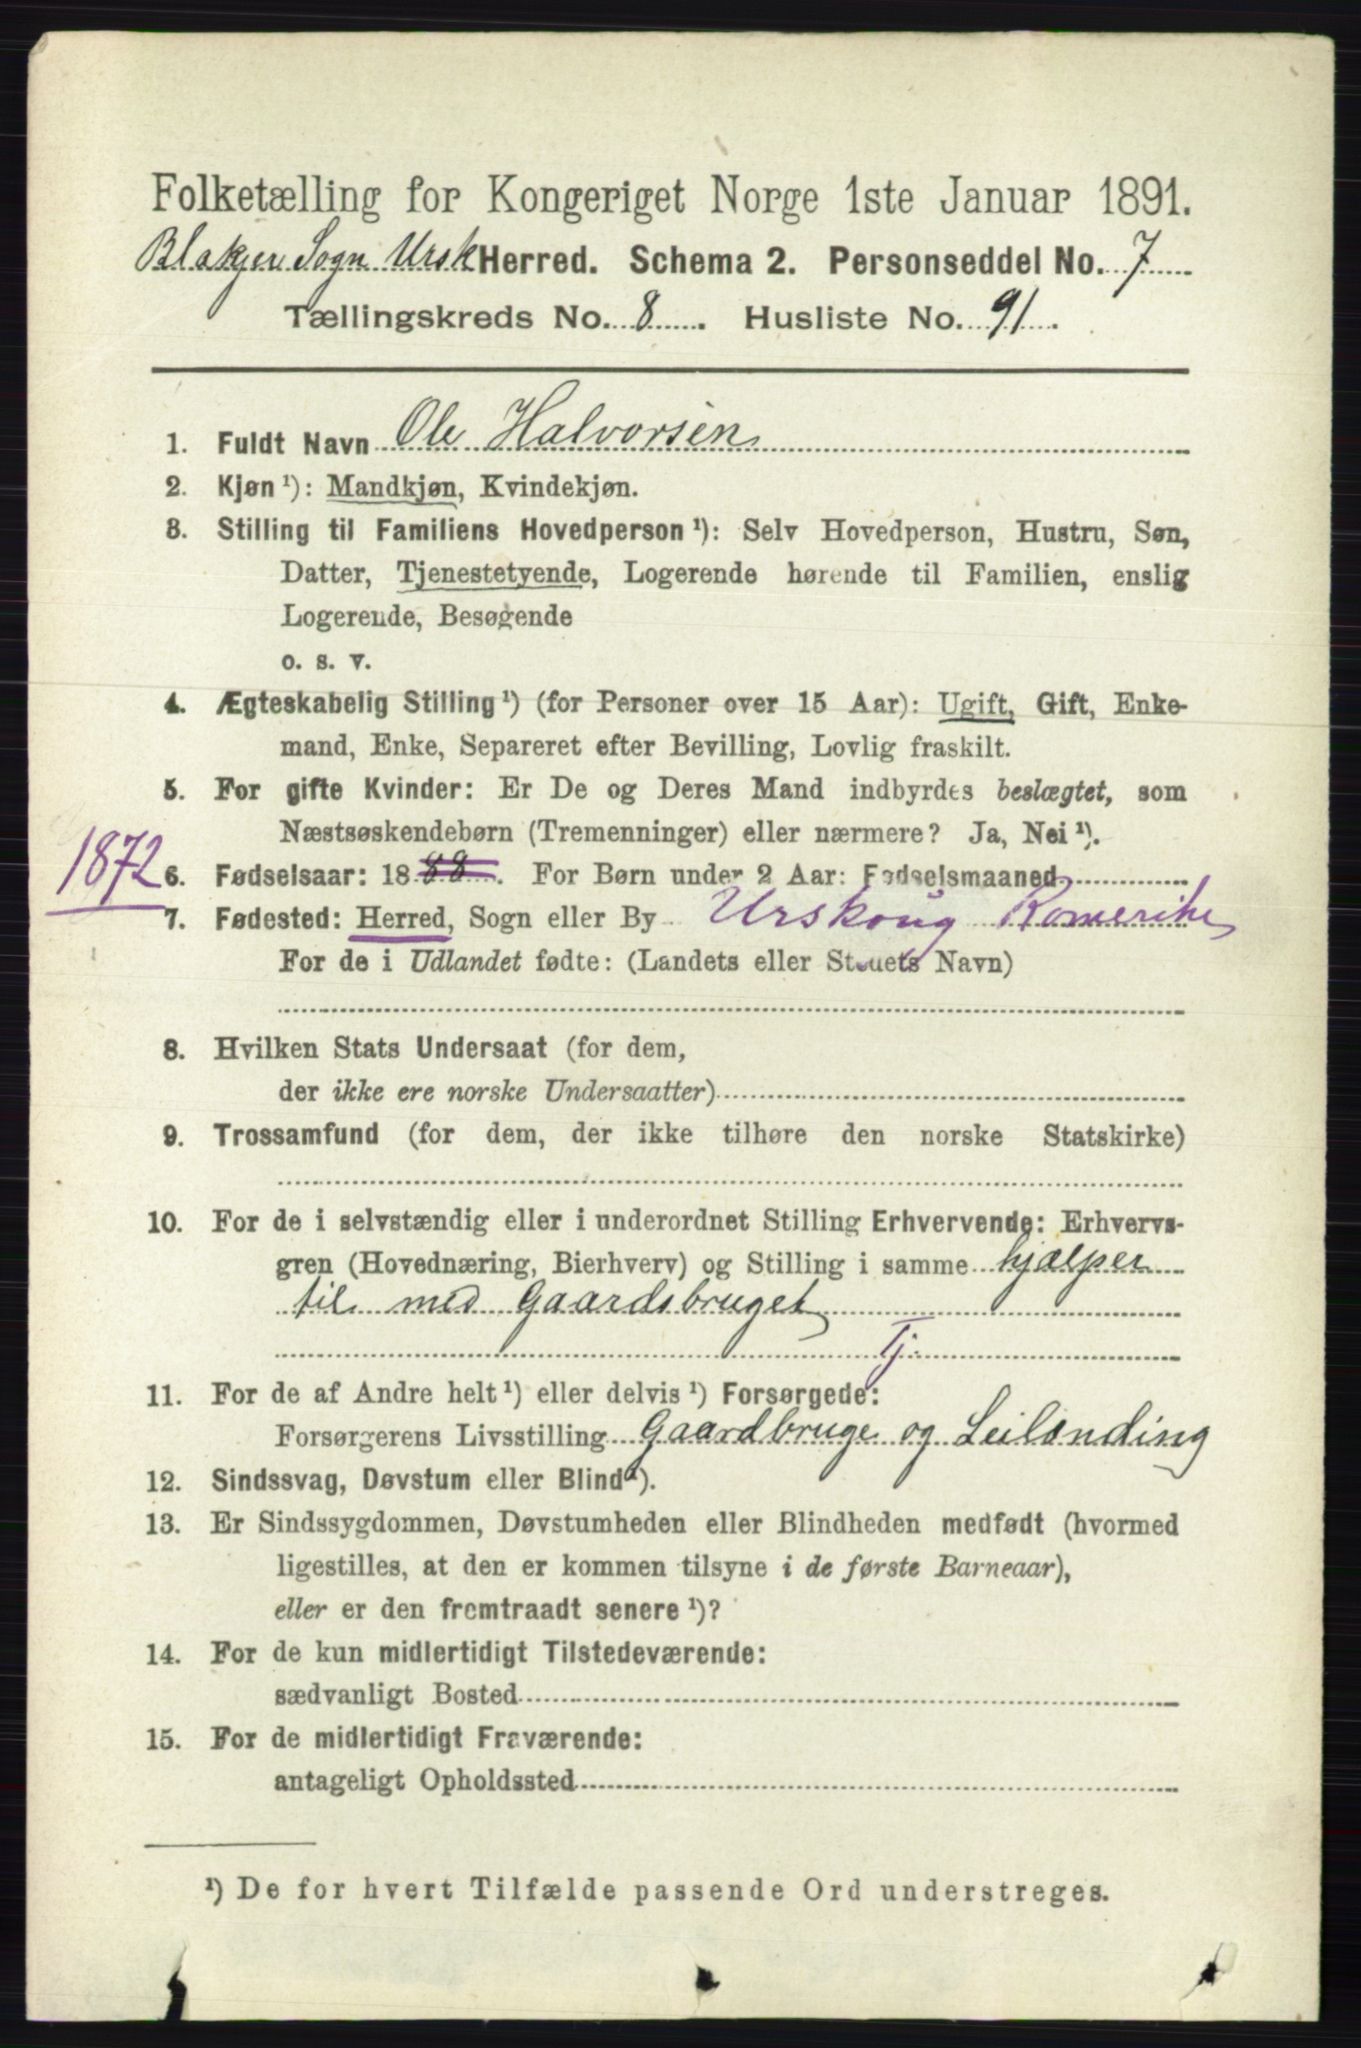 Folketælling for Kongeriget Norge 1ste Januar 1891.
Blakjer Sogn Ursk Herred. Schema 2. Personseddel No. 7
Tællingskreds No. 8. Husliste No. 91.
1. Fuldt Navn Ole Halvorsen
2. Kjøn ¹): Mandkjøn, Kvindekjøn.
3. Stilling til Familiens Hovedperson ¹): Selv Hovedperson, Hustru, Søn,
Datter, Tjenestetyende, Logerende hørende til Familien, enslig
Logerende, Besøgende
o. s. v.
4. Ægteskabelig Stilling ¹) (for Personer over 15 Aar): Ugift, Gift, Enke-
mand, Enke, Separeret efter Bevilling, Lovlig fraskilt.
5. For gifte Kvinder: Er De og Deres Mand indbyrdes beslægtet, som
Næstsøskendebørn (Tremenninger) eller nærmere? Ja, Nei ¹).
1872 6. Fødselsaar: 1888. For Børn under 2 Aar: Fødselsmaaned
7. Fødested: Herred, Sogn eller By Urskoug Romerike
For de i Udlandet fødte: (Landets eller Stedets Navn)
8. Hvilken Stats Undersaat (for dem,
der ikke ere norske Undersaatter)
9. Trossamfund (for dem, der ikke tilhøre den norske Statskirke)
10. For de i selvstændig eller i underordnet Stilling Erhvervende: Erhvervs-
gren (Hovednæring, Bierhverv) og Stilling i samme hjælper
til med Gaardsbruget
Tj.
11. For de af Andre helt ¹) eller delvis ¹) Forsørgede:
Forsørgerens Livsstilling Gaardbruge og Leilænding
12. Sindssvag, Døvstum eller Blind ¹).
13. Er Sindssygdommen, Døvstumheden eller Blindheden medfødt (hvormed
ligestilles, at den er kommen tilsyne i de første Barneaar),
eller er den fremtraadt senere ¹)?
14. For de kun midlertidigt Tilstedeværende:
sædvanligt Bosted
15. For de midlertidigt Fraværende:
antageligt Opholdssted
¹) De for hvert Tilfælde passende Ord understreges.